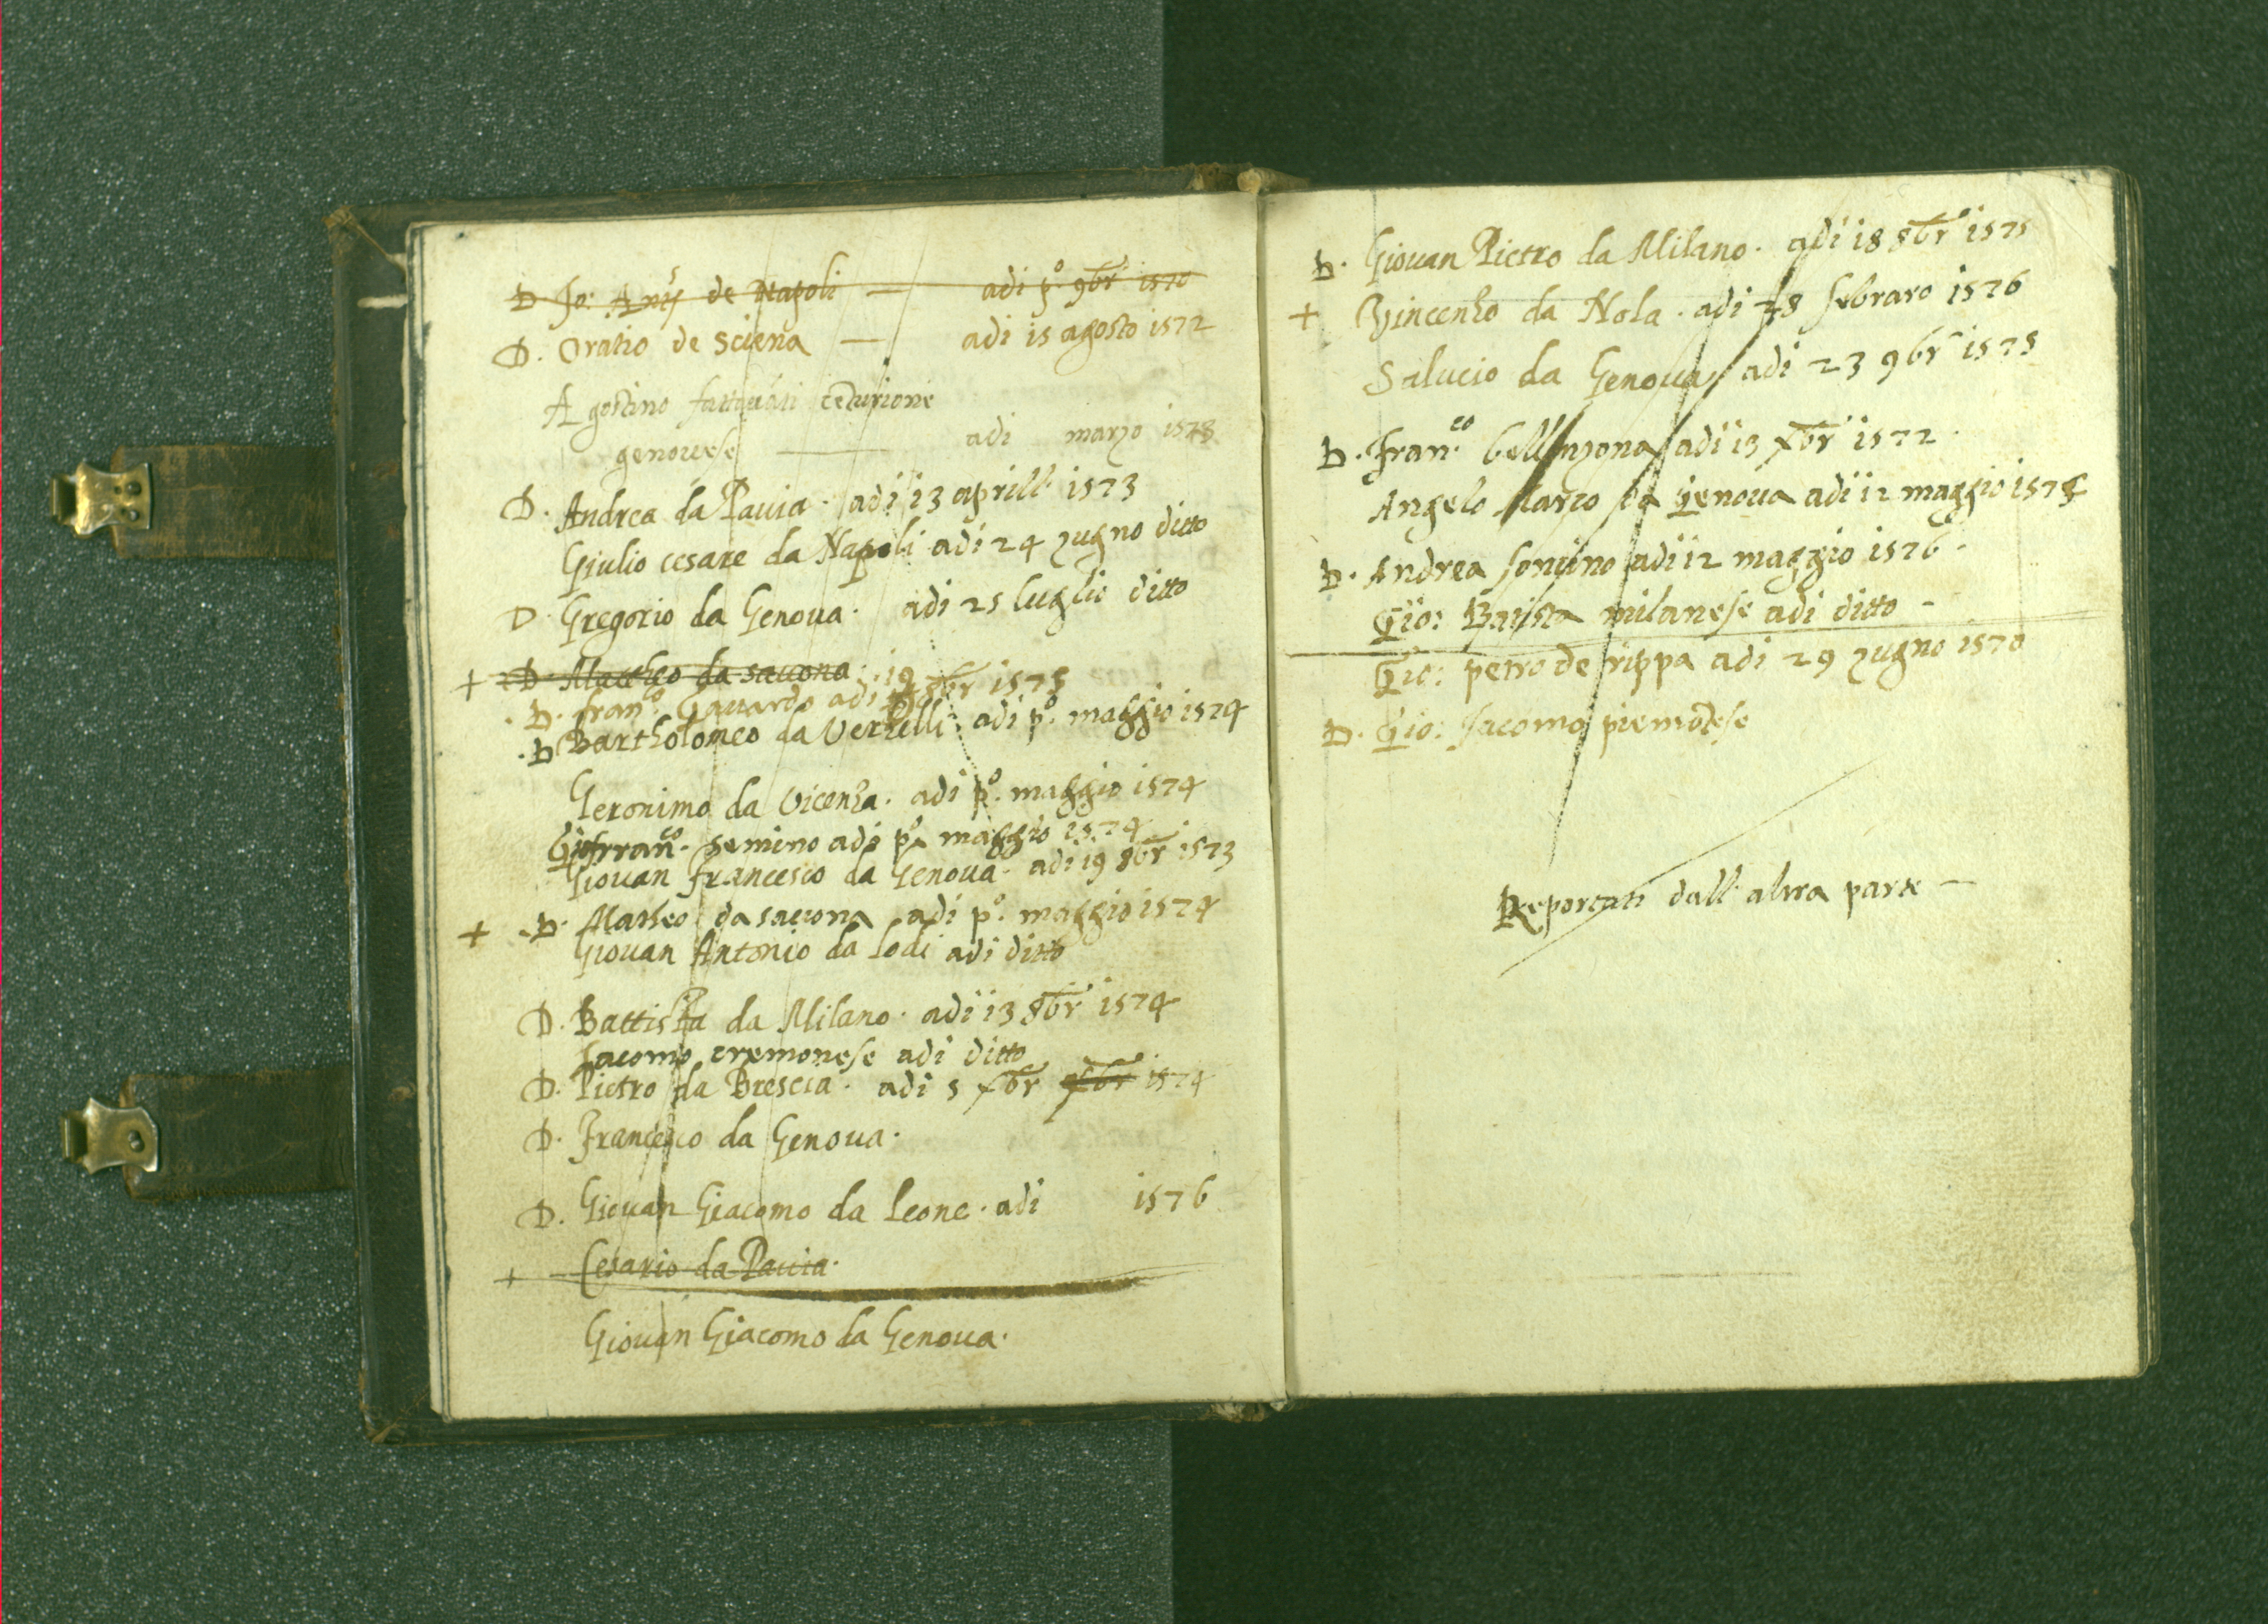 D. Jo: de Napoli — adi p.º 9br 1570
D. Oratio de Sciena — adi 15 agosto 1572
Agostino cēturione
genovese — adi marzo 1573
D. Andrea da Pavia. adi 13 aprill. 1573
Giulio cesare da Napoli adi 24 zugno ditto
D. Gregorio da Genova. adi 25 luglio ditto
+ D. Mattheo da savona
. D. fran.co Gavardo adi 19 8br 1575
. D Bartholomeo da Verzelli: adi p.º maggio 1574
Geronimo da Vicenza. adi p.º maggio 1574
Gio fran.co semino adi p.º maggio 1574
Giovan francesco da Genova. adi 19 8br 1573
+ . D. Matheo da savona adi p.º maggio 1574
Giovan Antonio da Lodi adi ditto
D. Battista da Milano. adi 13 8br 1574
Jacomo cremonese adi ditto
D. Pietro da Brescia. adi 5 xbr 1574
D. Francesco da Genova.
D. Giovan Giacomo da Leone. adi 1576
+ Cesario da Pavia.
Giovan Giacomo da Genova.
D. Giovan Pietro da Milano. adi 18 8br 1575
+ Vincenzo da Nola. adi 28 febraro 1576
Salucio da Genova adi 23 9br 1575
D. Fran.co bellinzona adi 13 xbr 1572.
Angelo Marco da Genova adi 12 maggio 1575
D. Andrea sonsino adi 12 maggio 1576.
Gio: Batista milanese adi ditto -
Gio: petro de rippa adi 29 zugno 1570
D. Gio: Jacomo piemōtese
Reportati dall' altra parte —